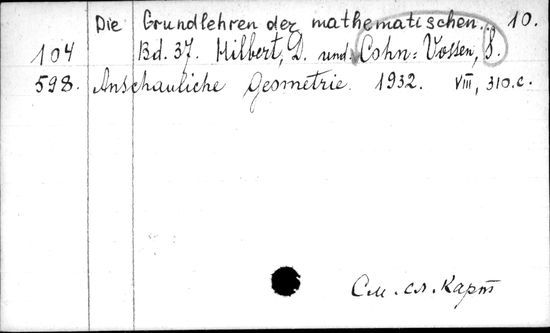 Die Grundlehren der mathematischen... 10.
104 Bd. 37. Hilbert, D. und Cohn-Vossen, S.
598. Anschauliche Geometrie. 1932. VIII, 310.с.
См. сл. карт